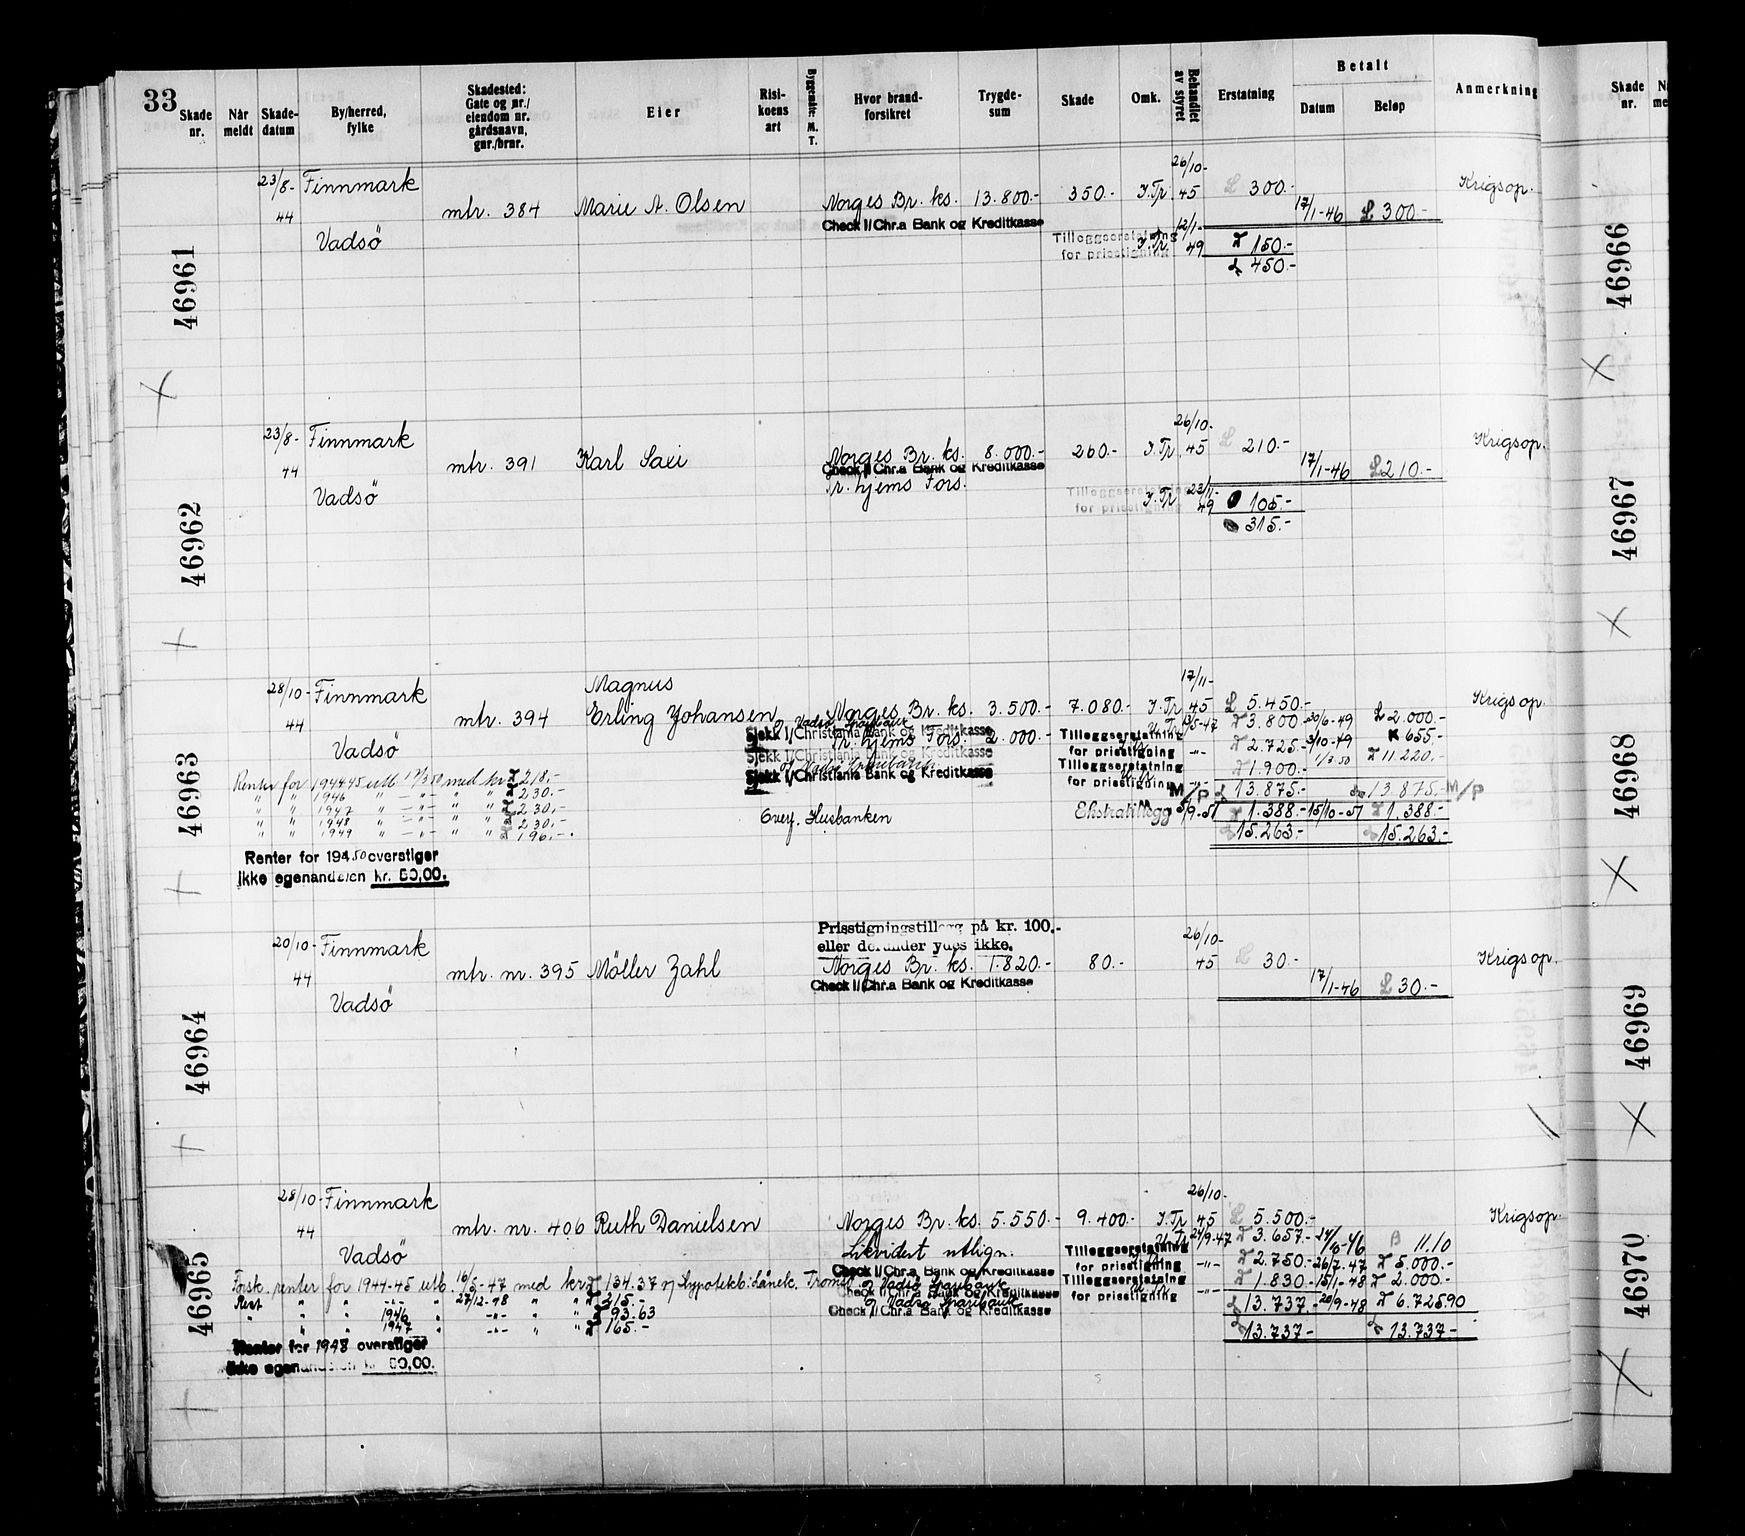 33
Skade nr.
Når meldt
Skade-datum
By/herred, fylke
Skadested: Gate og nr./ eiendom nr. gårdsnavn, gnr./brnr.
Eier
Risi-koens art
M. T.
Hvor brand-forsikret
Trygde-sum
Skade
Omk.
Behandlet av styret
Erstatning
Betalt
Datum
Beløp
Anmerkning
Skade nr.
46961
23/8- 44
Finnmark
Vadsö
mtr. 384
Marie A. Olsen
Norges Br. ks. 13.800.- 350.- J.Tr. 26/10-45 300.-
17/1-46 300.-
Krigsop.
Check I/Chr.a Bank og Kreditkasse
Tilleggserstatning for prisstigning J.Tr 12/1-49 150.-
450.-
46966
46962
23/8- 44
Finnmark
Vadsö
mtr. 391
Karl
Norges Br. ks. 8.000.- 260.- J.Tr 26/10-45 210.-
17/1-46 210.-
Krigsop.
Check I/Chr.a Bank og Kreditkasse
Tr. hjems Fors.
Tilleggserstatning for prisstigning J.Tr 23/11-49 105.-
315.-
46967
46963
28/10- 44
Finnmark
Vadsö
mtr. 394
Magnus
Erling Johansen
Norges Br. ks. 3.500.- 7.080.- J.Tr 17/11-45 5.450.-
Krigsop.
Vadsö Sparebank
Sjekk I/Christiania Bank og Kreditkasse
Tr. hjems Fors. 2.000.-
Sjekk I/Christiania Bank og Kreditkasse
Sjekk I/Christiania Bank og Kreditkasse
Overf. Husbanken
Tilleggserstatning for prisstigning
Tilleggserstatning for prisstigning
3.800 30/6-49 2.000.-
2.725.- 3/10-49 655-
1.900.- 11.220,-
M/P 13.875.- 13.875.- M/P
Ekstratillegg 5/9-51 1.388.- 15/10-51 1.388.-
15.263.- 15.263.-
Renter for 1944-45 utb. med kr 218,-
" " 1946 " " 230,-
" " 1947 " " 230,-
" " 1948 " " 230,-
" " 1949 " " 196,-
Renter for 194 50 overstiger
ikke egenandelen kr. 50,00.
46968
46964
20/10- 44
Finnmark
Vadsö
mtr. nr. 395
Möller Zahl
Prisstigningstillegg på kr. 100,-
eller derunder ydes ikke.
Norges Br. ks. 1.820.- 80.- 26/10-45 30.-
17/1-46 30.-
Krigsop.
Check I/Chr.a Bank og Kreditkasse
46969
46965
28/10- 44
Finnmark
Vadsö
mtr. nr. 406
Ruth Danielsen
Norges Br. ks. 5.550.- 9.400.- J.Tr 26/10-45 5.500.-
Krigsop.
Likvidert utlign.
Tilleggserstatning for prisstigning
Tilleggserstatning for prisstigning
24/9-47 3.657.- 11.10
2.750.- 26/7-47 5.000.-
1.830.- 15/1-48 2.000.-
13.737.- 20/9-48 6.725.90
13.737- 13.737-
Check I/Chr.a Bank og Kreditkasse
Vadsö Sparebank
Check I/Chr.a Bank og Kreditkasse
Vadsö Sparebank
Check I/Chr.a Bank og Kreditkasse
Forsk. renter for 1944-45 utb. 16/5-47 med kr 134.37 Hypotekb. Lånek. Tromsö
Rest " " 27/12-48 " 215.-
" " 1946 " 93.63
" " 1947 " 165.-
Renter for 1948 overstiger
ikke egenandelen kr. 50,00.
46970